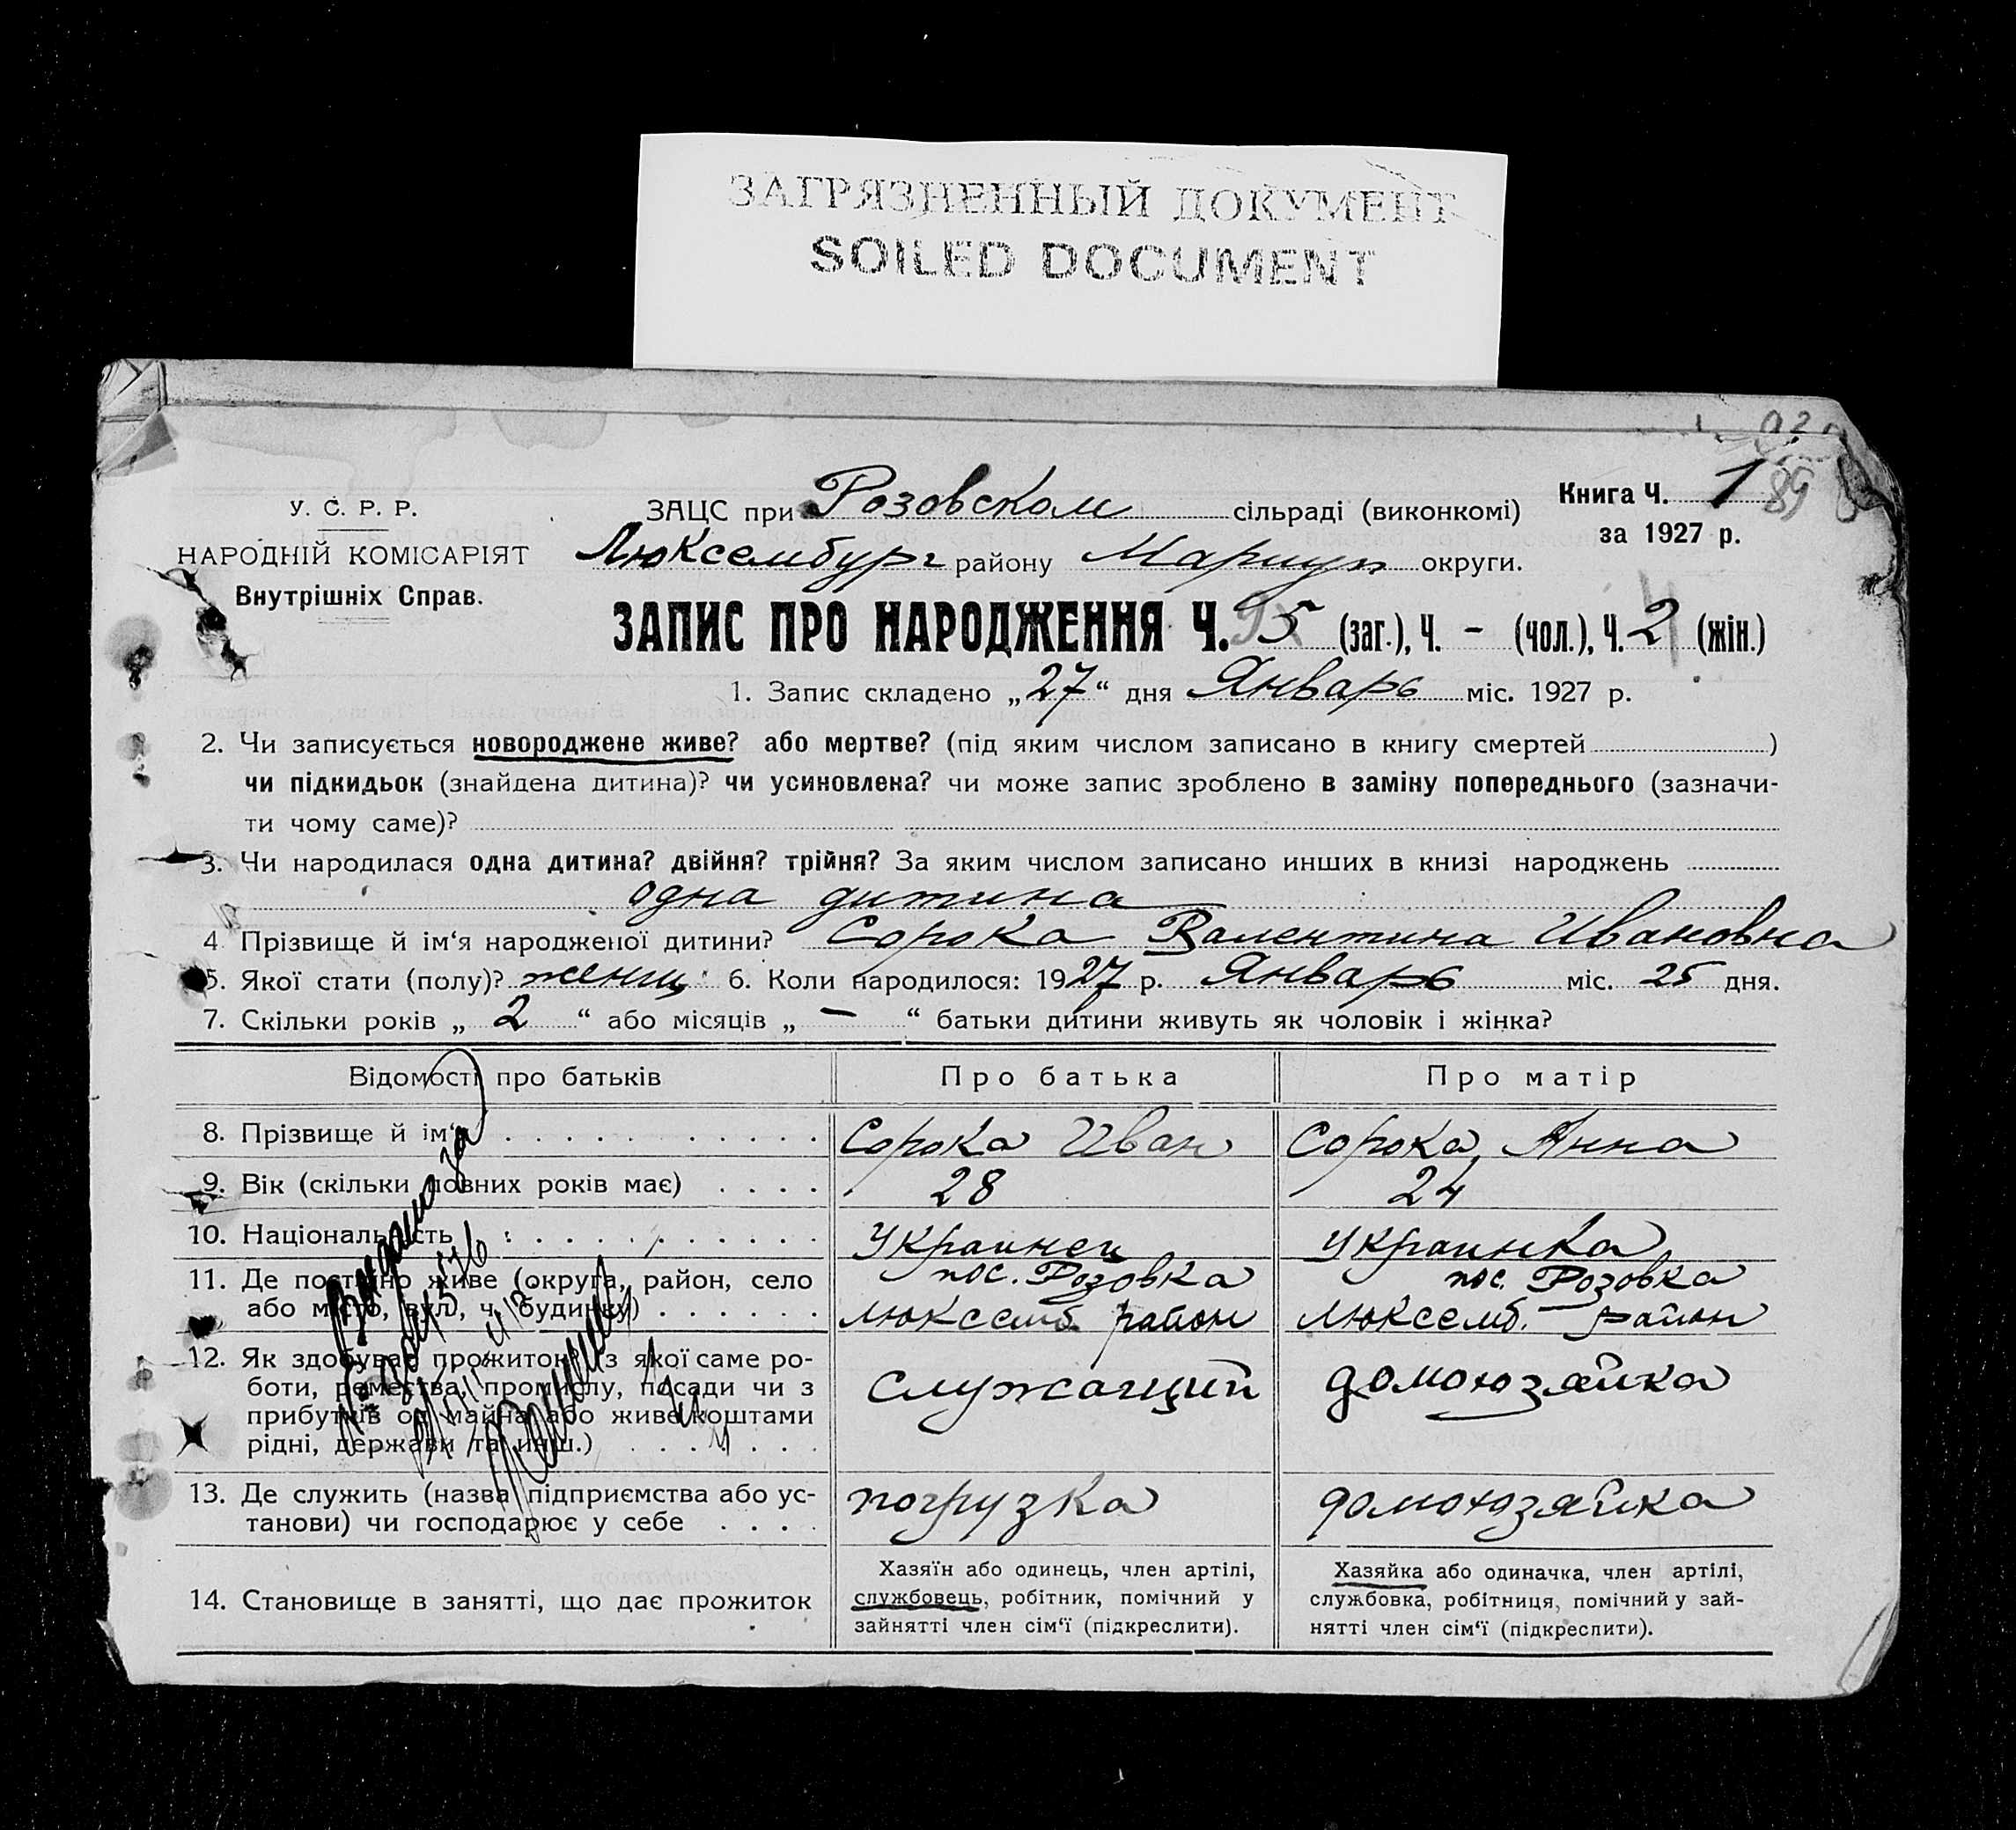 ЗАГРЯЗНЕННЫЙ ДОКУМЕНТ
SOILED DOCUMENT
У. С. Р. Р.
НАРОДНІЙ КОМІСАРІЯТ
Внутрішніх Справ.
ЗАЦС при Розовском сільраді (виконкомі)
Люксембург району Мариуп округи.
Книга Ч. 1 89
за 1927 р.
ЗАПИС ПРО НАРОДЖЕННЯ Ч. 5 (заг.), Ч. – (чол.), Ч. 2 (жін.)
1. Запис складено „27“ дня Январь міс. 1927 р.
2. Чи записується новороджене живе? або мертве? (під яким числом записано в книгу смертей )
чи підкидьок (знайдена дитина)? чи усиновлена? чи може запис зроблено в заміну попереднього (зазначи-
ти чому саме)?
3. Чи народилася одна дитина? двійня? трійня? За яким числом записано инших в книзі народжень
одна дитина
4 Прізвище й ім‘я народженої дитини? Сорока Валентина Ивановна
5. Якої стати (полу)? женщ 6. Коли народилося: 1927 р. Январь міс. 25 дня.
7. Скільки років „ 2 “ або місяців „ – “ батьки дитини живуть як чоловік і жінка?
Відомості про батьків Про батька Про матір
8. Прізвище й ім‘я Сорока Иван Сорока Анна
9. Вік (скільки повних років має) 28 24
10. Національність Украинец Украинка
11. Де постійно живе (округа, район, село пос. Розовка пос. Розовка
або місто, вул., ч. будинку) Люксемб. район Люксемб. район
12. Як здобуває прожиток? (з якої саме ро-
боти, ремества, промислу, посади чи з служащий домохозяйка
прибутків од майна або живе коштами
рідні, держави та инш.)
13. Де служить (назва підприємства або ус- погрузка домохозяйка
танови) чи господарює у себе
14. Становище в занятті, що дає прожиток
Хазяїн або одинець, член артілі,
службовець, робітник, помічний у
зайнятті член сім‘ї (підкреслити).
Хазяйка або одиначка, член артілі,
службовка, робітниця, помічний у зай-
нятті член сім‘ї (підкреслити).